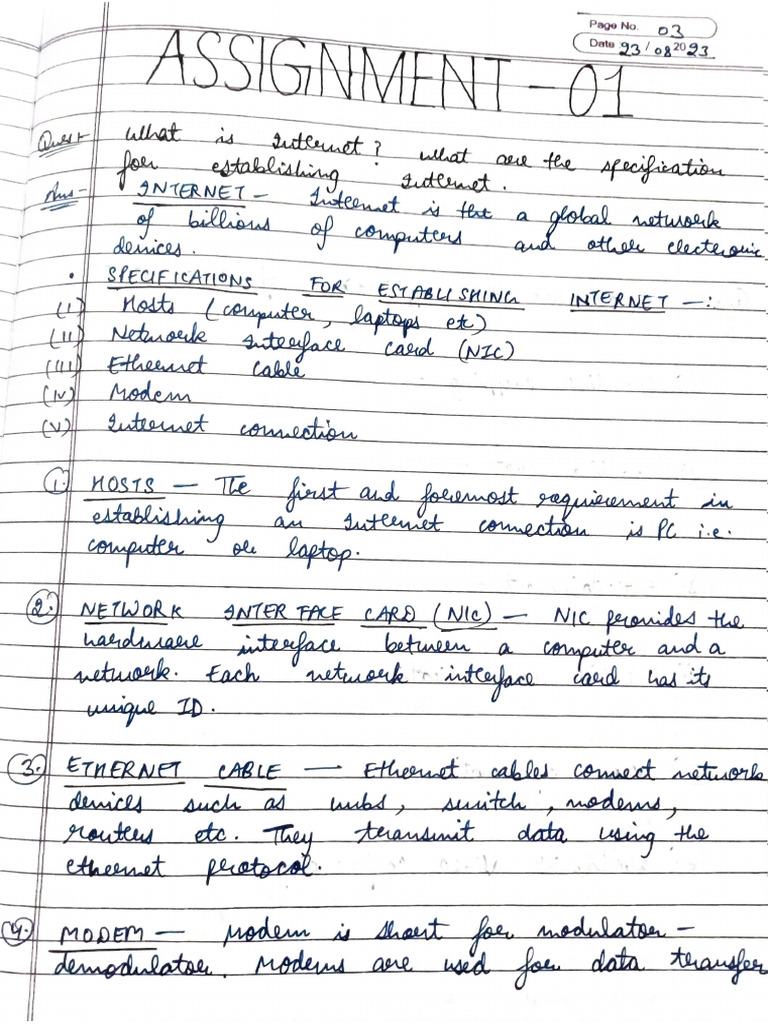 Page No. 03
Date 23/08 2023
ASSIGNMENT-01
Ques:- What is Internet? What are the specification
for establishing Internet.
Ans:- INTERNET - Internet is the a global network
of billions of computers and other electronic
devices.
• SPECIFICATIONS FOR ESTABLISHING INTERNET -:
(I) Hosts (computer, laptops etc)
(II) Network Interface card (NIC)
(III) Ethernet cable
(IV) Modem
(V) Internet connection
1. HOSTS - The first and foremost requirement in
establishing an Internet connection is PC i.e.
computer or laptop.
2. NETWORK INTERFACE CARD (NIC) - NIC provides the
hardware interface between a computer and a
network. Each network interface card has its
unique ID.
3. ETHERNET CABLE - Ethernet cables connect network
devices such as hubs, switch, modems,
routers etc. They transmit data using the
ethernet protocol.
4. MODEM - Modem is short for modulator -
demodulator. Modems are used for data transfer